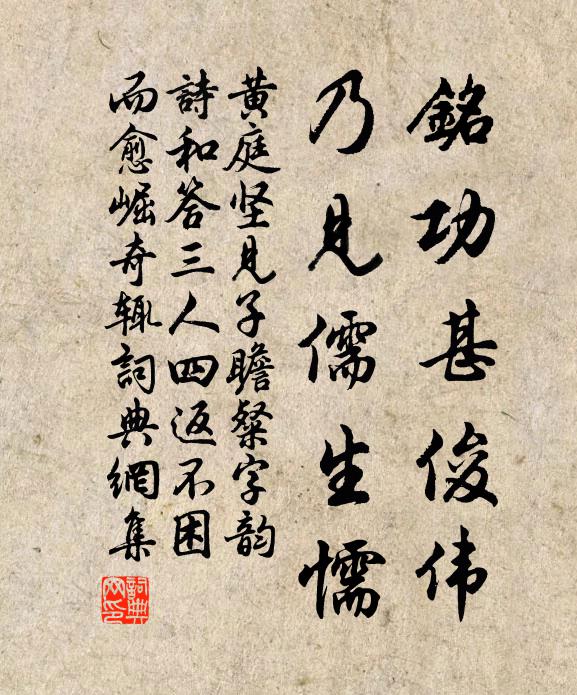 銘功甚俊伟
乃見儒生懦
黄庭坚見子瞻粲字韵
詩和答三人四返不困
而愈崛奇辄詞典網集
詞典網印